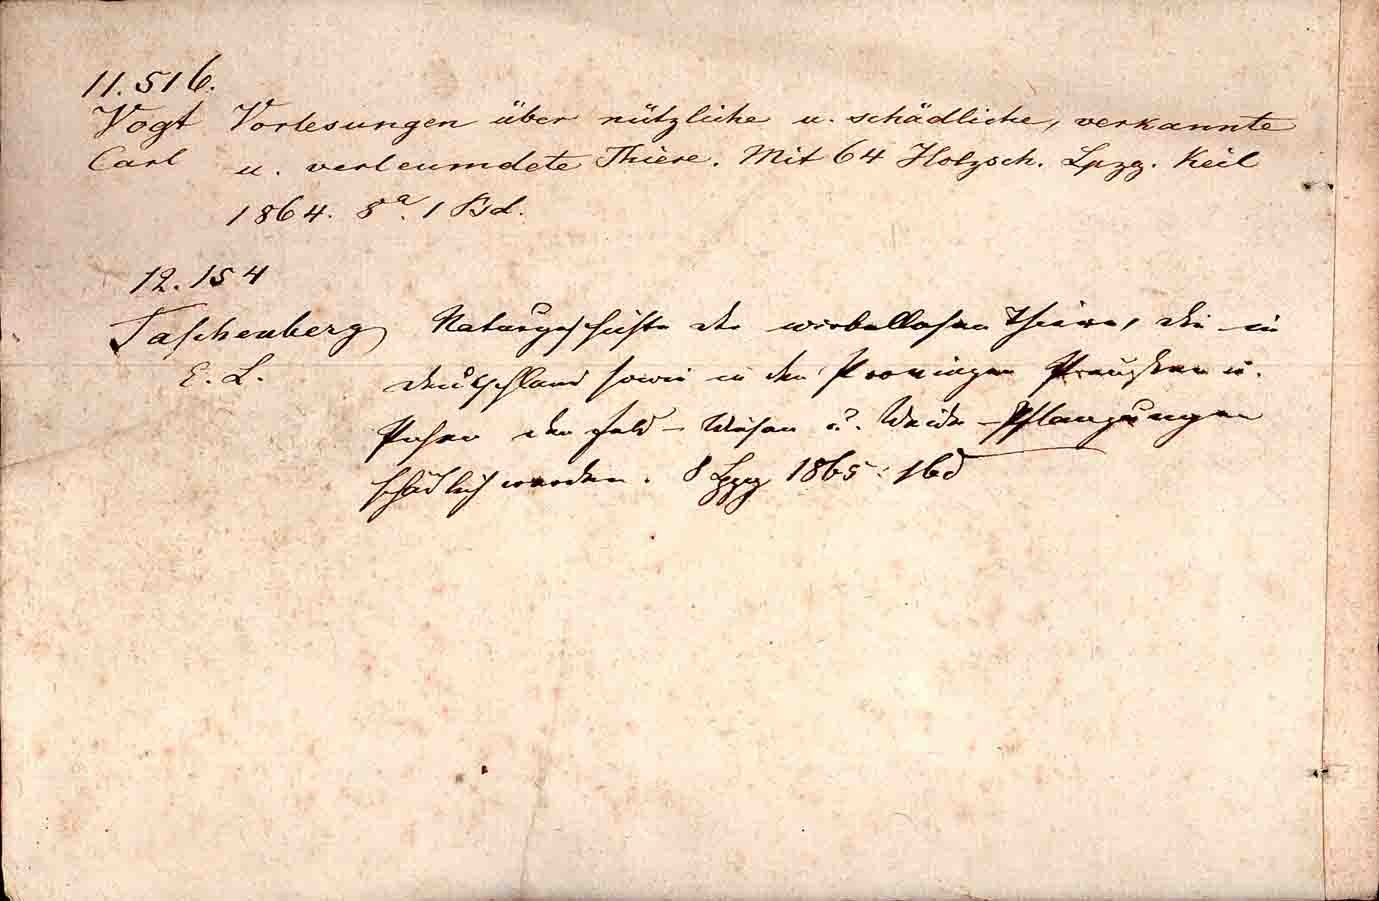 11.516.
Vogt Vorlesungen über nützliche u. schädliche, verkannte
Carl u. verleumdete Thiere. Mit 64 Holzsch. Lpzg. Keil
1864. 8°. 1 Bd.
12.154
Taschenberg Naturgeschichte der wirbellosen Thiere, die in
E. L. Deutschland sowie in den Provinzen Preußen u.
Posen den Feld- Wiesen u. Weide-Pflanzungen
schädlich werden. 8 Lpzg 1865. 1 Bd